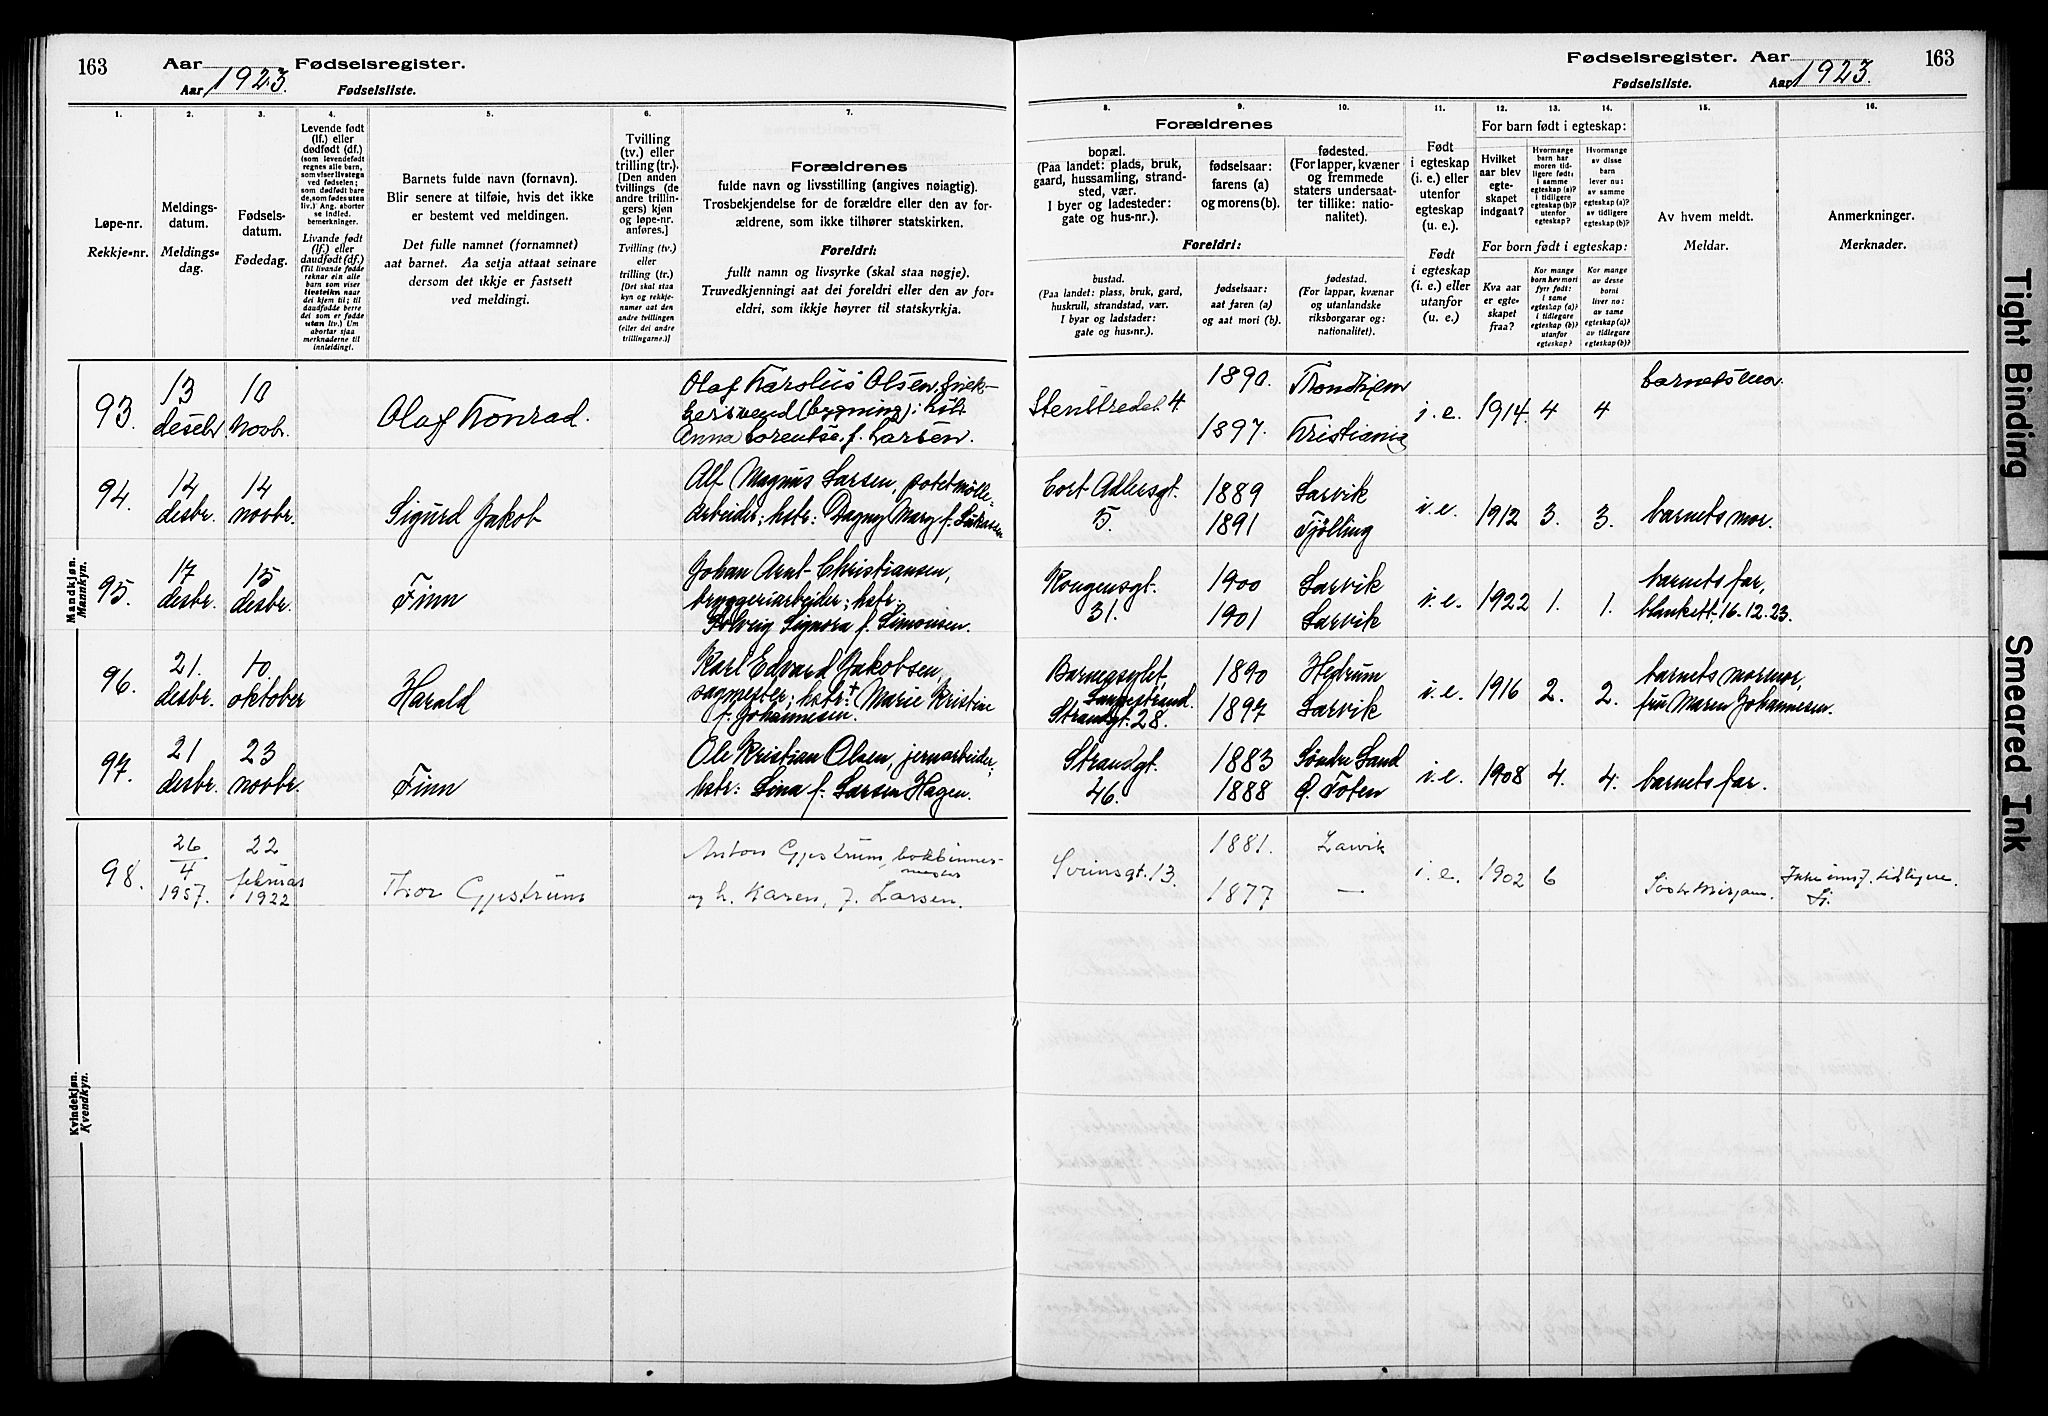 163 Aar 1923. Fødselsregister.
Aar Fødselsliste.
Fødselsregister. Aar 1923. 163
Fødselsliste. Aar
1. 2. 3. 4. 5. 6. 7.
8. 9. 10. 11. 12. 13. 14. 15. 16.
Løpe-nr.
Rekkje-nr.
Meldings-
datum.
Meldings-
dag.
Fødsels-
datum.
Fødedag.
Levende født
(lf.) eller
dødfødt (df.)
(som levendefødt
regnes alle barn,
som viser livstegn
ved fødselen;
som dødfødt bare
de, som fødes uten
liv.) Ang. aborter
se indled.
bemerkninger.
Livande født
(lf.) eller
daudfødt (df.)
(Til livande fødde
reknar ein alle
barn som viser
livsteikn naar
dei kjem til; til
daudfødde berre
dei som er fødde
utan liv.) Um
abortar sjaa
merknaderne til
innleidingi.
Barnets fulde navn (fornavn).
Blir senere at tilføie, hvis det ikke
er bestemt ved meldingen.
Det fulle namnet (fornamnet)
aat barnet. Aa setja attaat seinare
dersom det ikkje er fastsett
ved meldingi.
Tvilling
(tv.) eller
trilling (tr.)
[Den anden
tvillings (de
andre trillin-
gers) kjøn
og løpe-nr.
anføres.]
Tvilling (tv.)
eller
trilling (tr.)
[Det skal staa
kyn og rekkje-
numer aat den
andre tvillingen
(eller dei andre
trillingarne.)]
Forældrenes
fulde navn og livsstilling (angives nøiagtig).
Trosbekjendelse for de forældre eller den av for-
ældrene, som ikke tilhører statskirken.
Foreldri:
fullt namn og livsyrke (skal staa nøgje).
Truvedkjenningi aat dei foreldri eller den av for-
eldri, som ikkje høyrer til statskyrkja.
Forældrenes
bopæl.
(Paa landet: plads, bruk,
gaard, hussamling, strand-
sted, vær.
I byer og ladesteder:
gate og hus-nr.).
fødselsaar:
farens (a)
og morens (b).
fødested.
(For lapper, kvæner
og fremmede
staters undersaat-
ter tillike: natio-
nalitet).
Foreldri:
bustad.
(Paa landet: plass, bruk, gard,
huskrull, strandstad, vær.
I byar og ladstader:
gate og hus-nr.).
fødselsaar:
aat faren (a)
og aat mori (b).
fødestad.
(For lappar, kvænar
og utanlandske
riksborgarar og:
nationalitet).
Født
i egteskap
(i. e.) eller
utenfor
egteskap
(u. e.).
Født
i egteskap
(i. e.) eller
utanfor
(u. e.).
For barn født i egteskap:
Hvilket
aar blev
egte-
skapet
indgaat?
Hvormange
barn har
moren tid-
ligere født:
i samme
egteskap (a)?
i tidligere
egteskap (b)?
utenfor
egteskap?
Hvormange
av disse
barn
lever nu:
av samme
egteskap (a)?
av tidligere
egteskap (b)?
For born født i egteskap:
Kva aar
er egte-
skapet
fraa?
Kor mange
born hev mori
fyrr født:
i same
egteskap (a)?
i tidlegare
egteskap (b)?
utanfor
egteskap?
Kor mange
av desse
borni
liver no:
av same
egteskap (a)?
av tidlegare
egteskap (b)?
Av hvem meldt.
Meldar.
Anmerkninger.
Merknader.
Mandkjøn.
Mannkyn.
93. 13 desebr. 10 Novbr. Olaf Konrad. Olaf Karolius Olsen,
svend (bygning); hstr.
Anna Lorentse, f. Larsen.
Stenstredet 4. 1890. Trondhjem i.e. 1914. 4 4 barnets mor
1897. Kristiania
94. 14 desbr. 14 novbr. Sigurd Jakob Alf Magnus Larsen, potetmølle-
arbeider; hstr: Dagny Mary f.
Cort Adlersgt. 5. 1889 Larvik i.e. 1912 3. 3. barnets mor.
1891 Tjølling
95. 17 desbr. 15 desbr. Finn Johan Arnt Christiansen,
bryggeriarbeider; hstr:
Solveig Signora f. Simonsen.
Kongensgt. 31. 1900 Larvik i.e. 1922 1. 1. barnets far,
1901 Larvik blankett. 16-12-23.
96. 21. desbr. 10. oktober Harald Karl Edvard Jakobsen,
sagmester; hstr: Marie Kristine
f. Johannesen.
Langestrand.
Strandgt. 28. 1890 Hedrum i.e. 1916 2. 2. barnets mormor,
1897 Larvik fru Maren Johannesen.
97. 21 desbr. 23 novbr. Finn Ole Kristian Olsen, jernarbeider;
hstr: Lina f. Larsen Hagen.
Strandgt. 46. 1883 Søndre Land i.e. 1908 4. 4. barnets far.
1888 Ø. Toten
98. 26/4 1957. 22 februar 1922 Thor Gjestrum Anton Gjestrum, bokbinner-
mester
og h. Karen, f. Larsen.
Sveinsgt. 13. 1881. Larvik i.e. 1902 6 Søster Mirjam. Ikke innf. tidligere.
1877 —
Kvindekjøn.
Kvendkyn.
Tight Binding
Smeared Ink